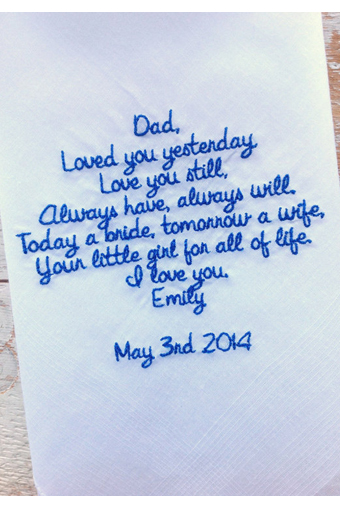 Dad,
Loved you yesterday
Love you still,
Always have, always will.
Today a bride, tomorrow a wife,
Your little girl for all of life.
I love you.
Emily
May 3nd 2014